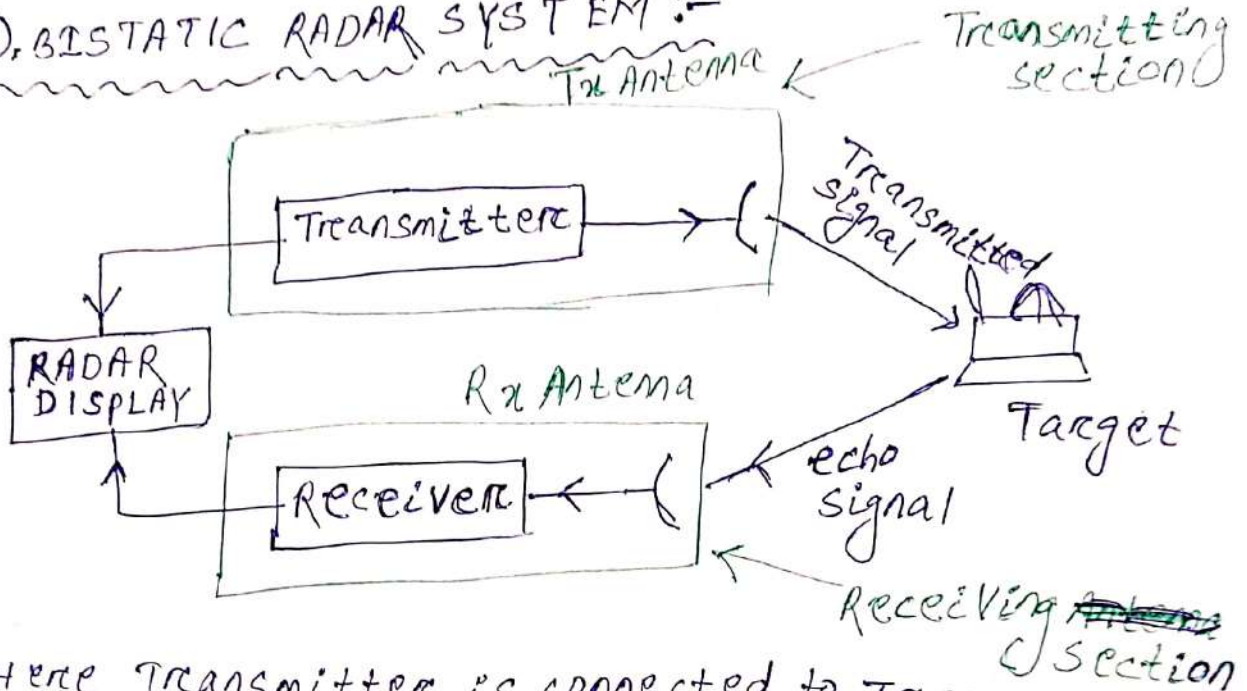 ). BISTATIC RADAR SYSTEM :-
Transmitting
section
Tx Antenna
Transmitter
Transmitted
signal
RADAR
DISPLAY
Rx Antenna
Target
Receiver
echo
signal
Receiving
section
Here Transmitter is connected to